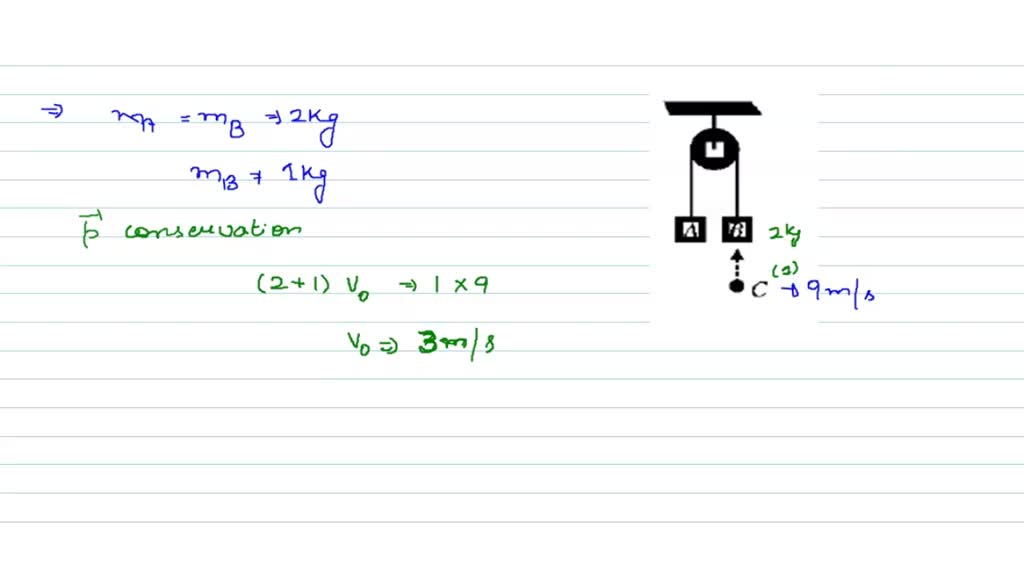 ⇒ m_A = m_B → 2kg
m_B → 1kg
p⃗ conservation
(2+1) V₀ → 1 × 9
V₀ ⇒ 3m/s
A B 2kg
(1)
C → 9m/s